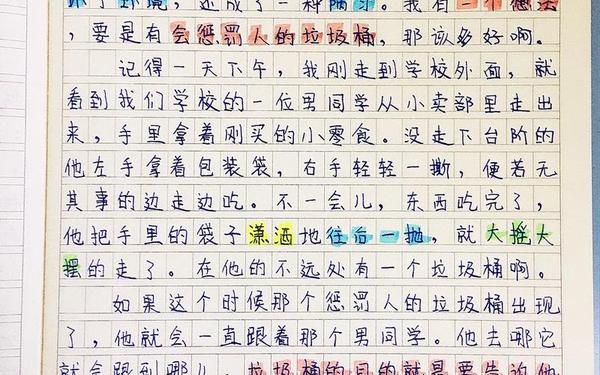 坏了环境，还成了一种陋习。我有一个想法
，要是有会惩罚人的垃圾桶，那该多好啊。
记得一天下午，我刚走到学校外面，就
看到我们学校的一位男同学从小卖部里走出
来，手里拿着刚买的小零食。没走下台阶的
他左手拿着包装袋，右手轻轻一撕，便若无
其事的边走边吃。不一会儿，东西吃完了，
他把手里的袋子潇洒地往后一抛，就大摇大
摆的走了。在他的不远处有一个垃圾桶啊。
如果这个时候那个惩罚人的垃圾桶出现
了，他就会一直跟着那个男同学。他去哪它
就会跟到哪儿，垃圾桶的目的就是要告诉他